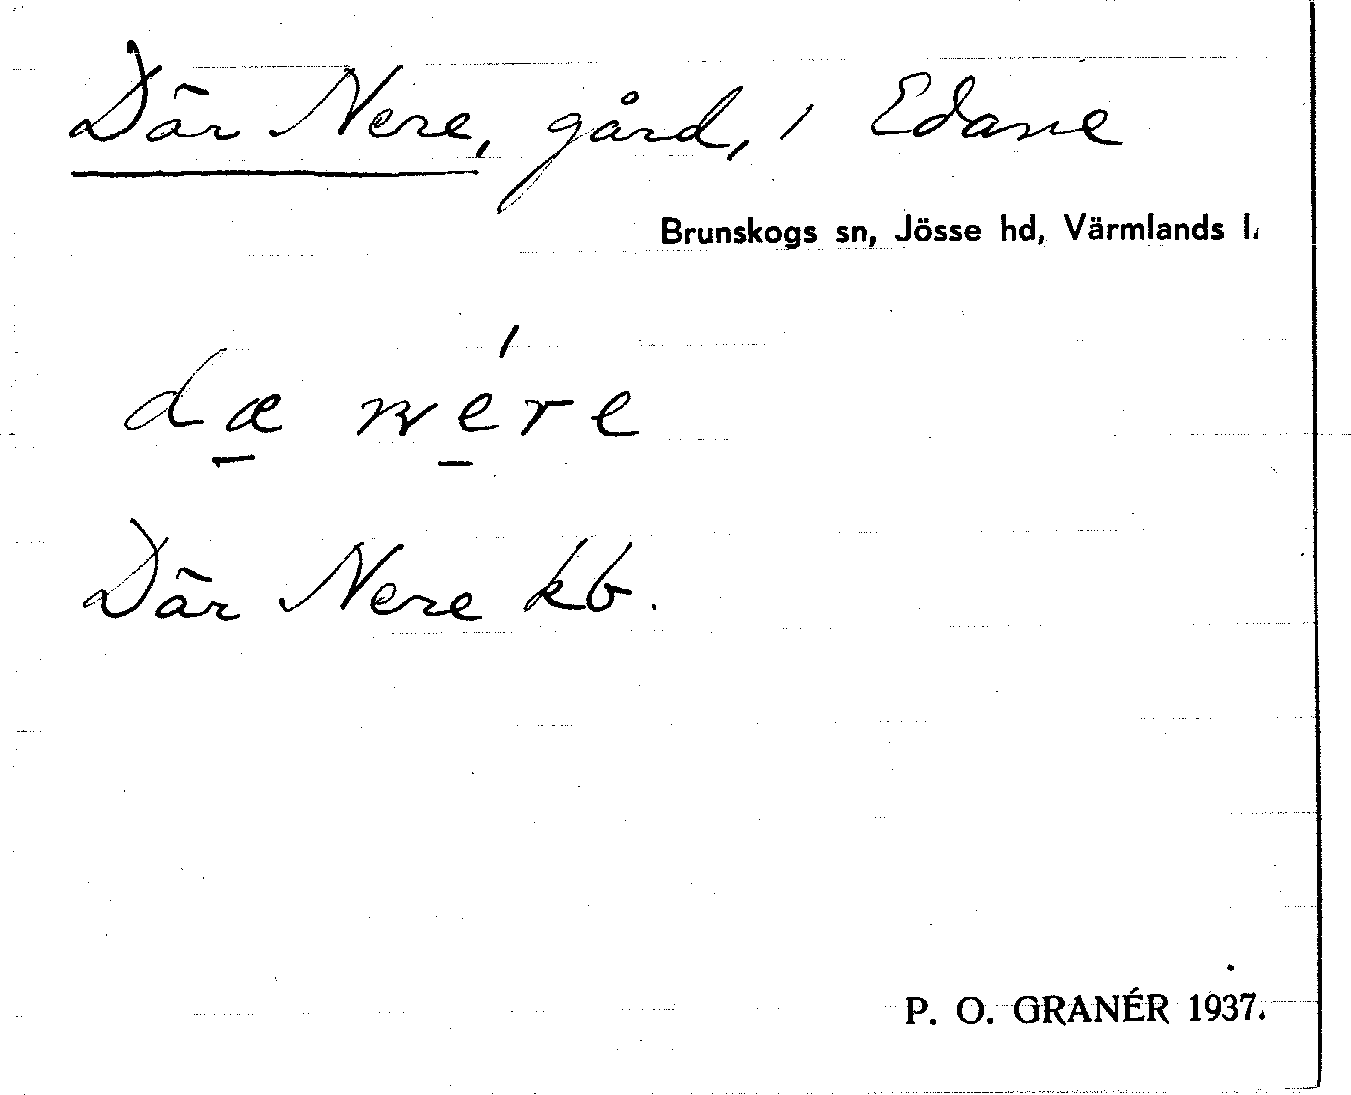 Där Nere, gård, i Edane
Brunskogs sn, Jösse hd, Värmlands l.
dæ ne̠´re
Där Nere kb.
P. O. GRANÉR 1937.